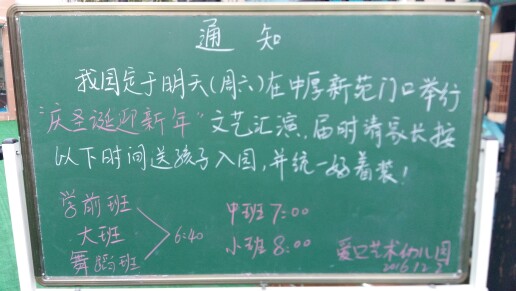 通知
我园定于明天(周六)在中厚新苑门口举行
"庆圣诞迎新年"文艺汇演、届时请家长按
以下时间送孩子入园,并统一好着装!
学前班
大班
舞蹈班
6:40
中班7:00
小班8:00
艺术幼儿园
2016.12.